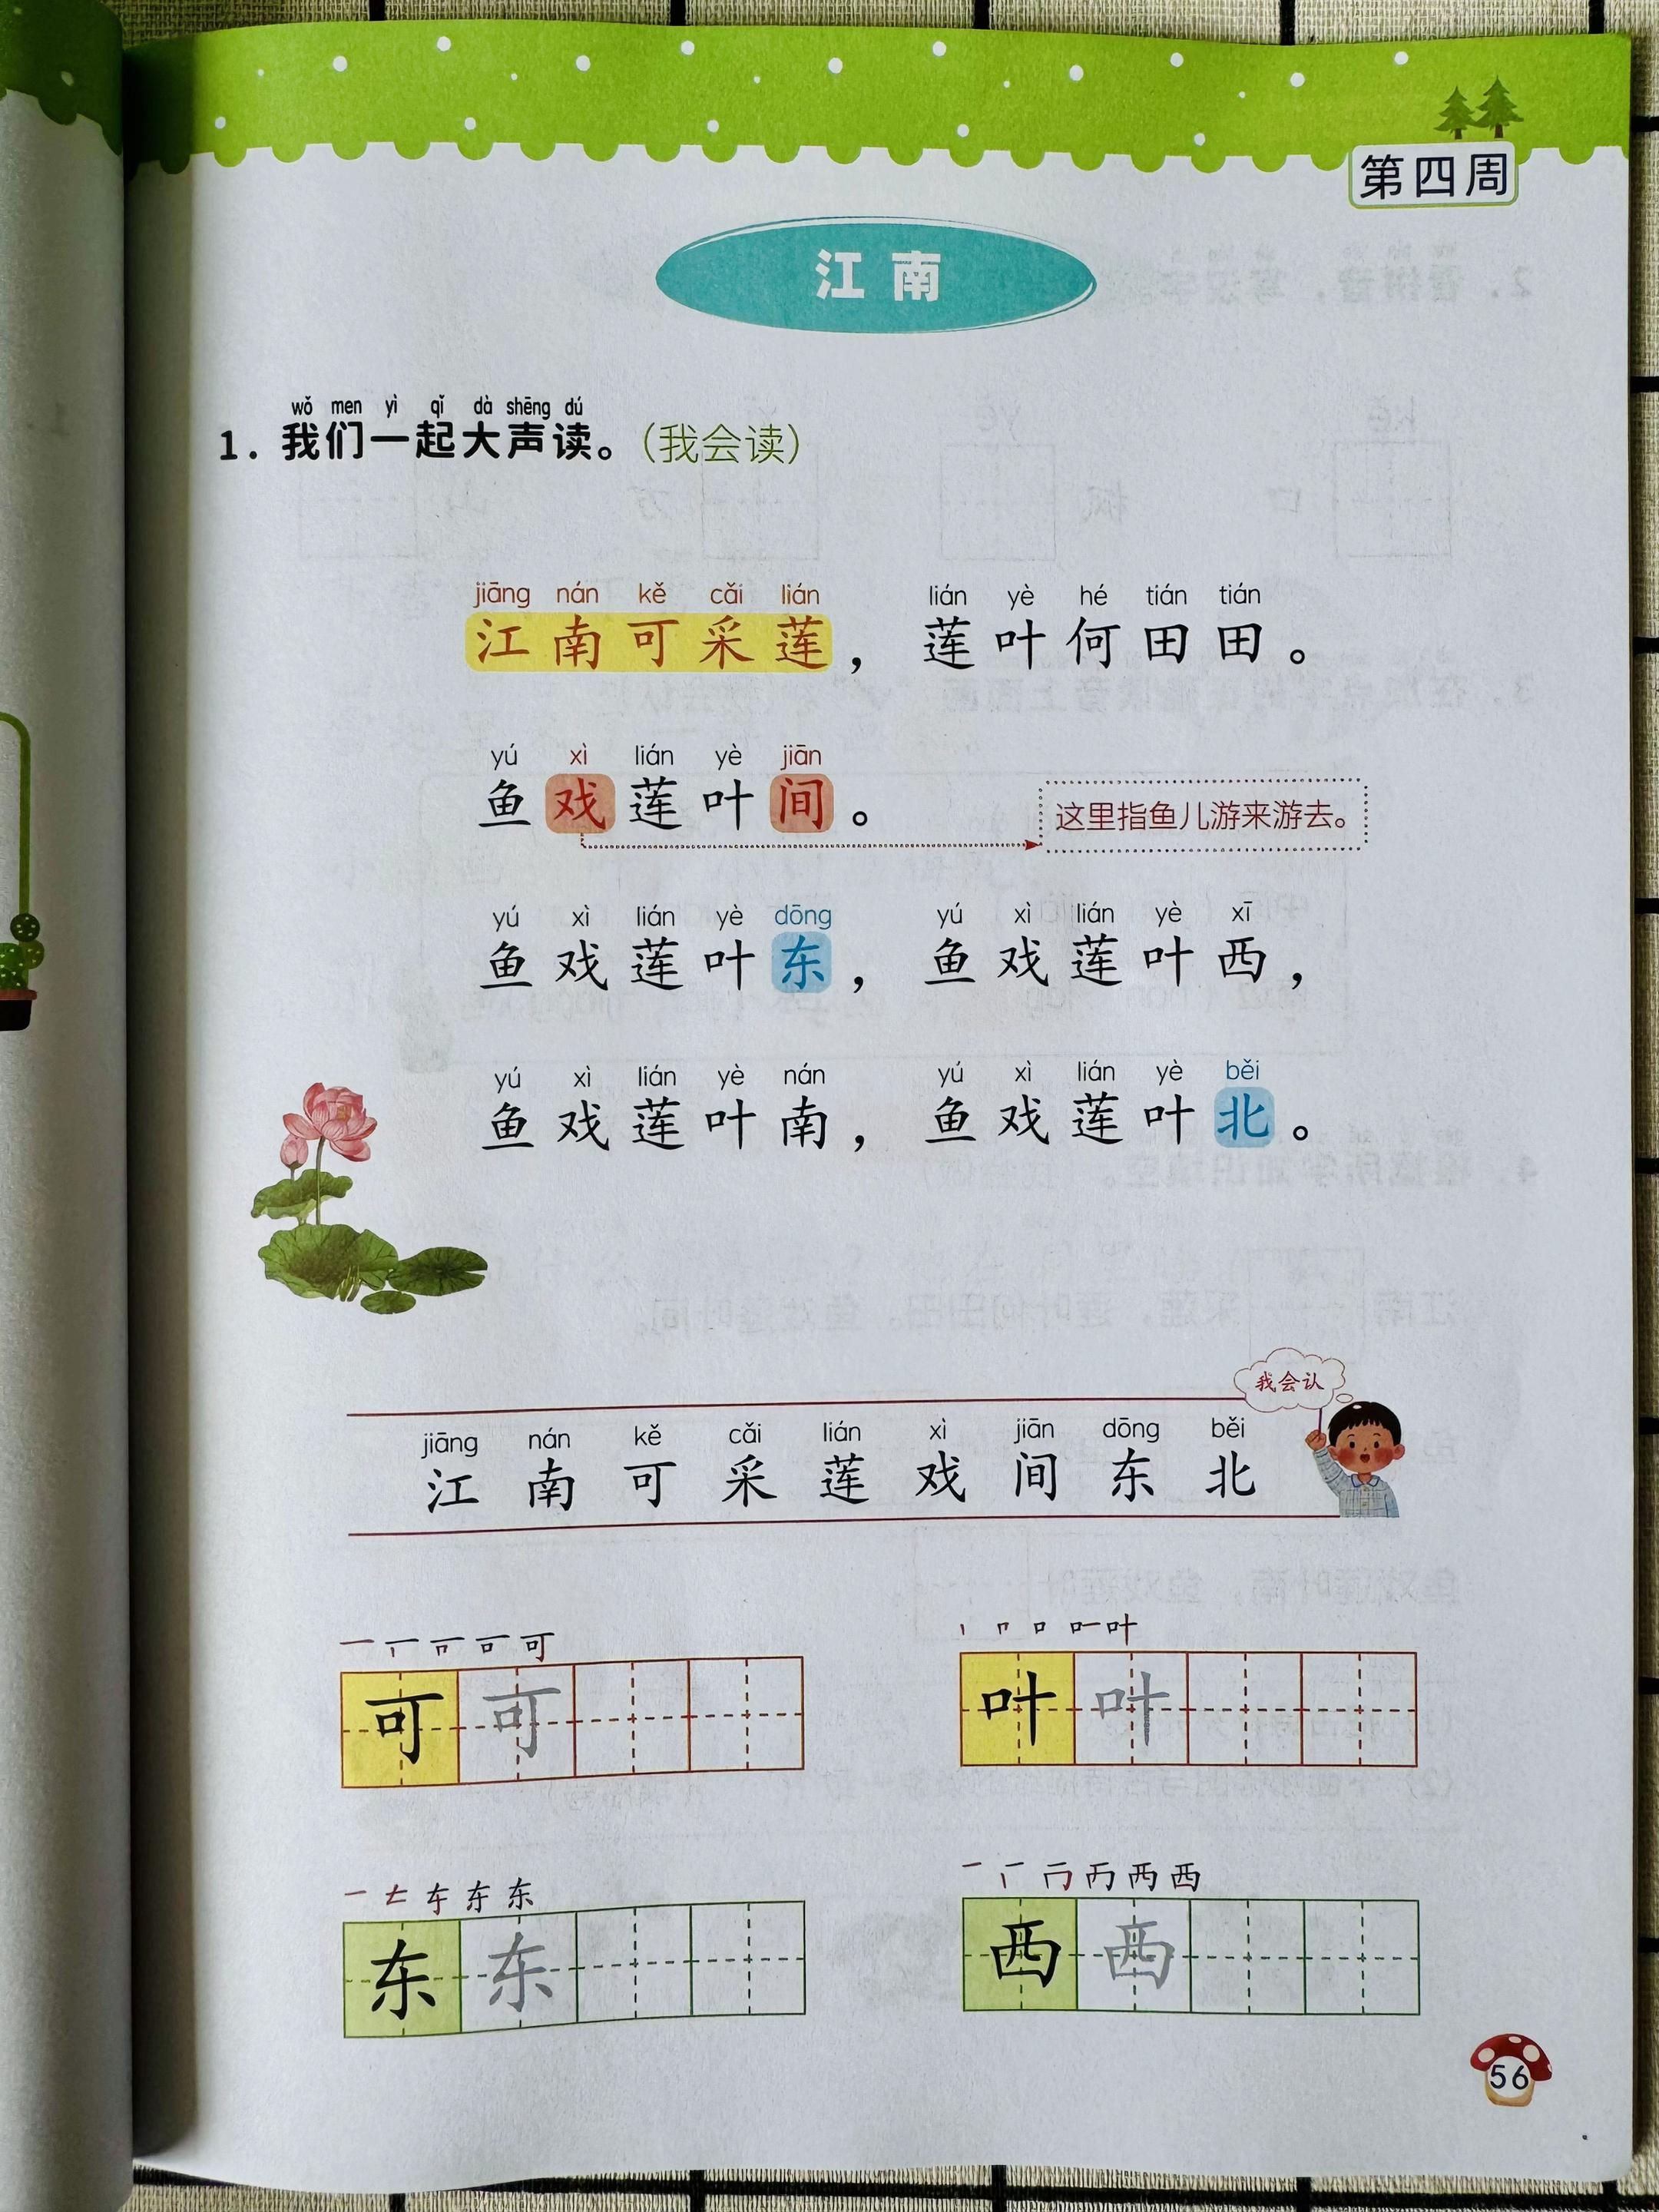 第四周
江南
wǒ men yì qǐ dà shēng dú
1. 我们一起大声读。（我会读）
jiāng nán kě cǎi lián lián yè hé tián tián
江南可采莲，莲叶何田田。
yú xì lián yè jiān
鱼戏莲叶间。
这里指鱼儿游来游去。
yú xì lián yè dōng yú xì lián yè xī
鱼戏莲叶东，鱼戏莲叶西，
yú xì lián yè nán yú xì lián yè běi
鱼戏莲叶南，鱼戏莲叶北。
我会认
jiāng nán kě cǎi lián xì jiān dōng běi
江 南 可 采 莲 戏 间 东 北
可 可
叶 叶
东 东
西 西
56